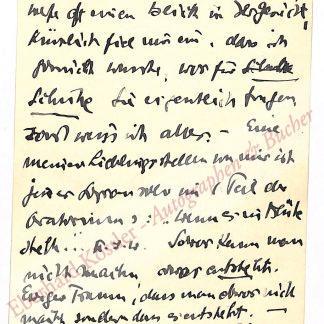 mehr oft einen Besuch in
Kürzlich fiel mir ein, dass ich
garnicht wusste, was für Schuhe
Schuhe Sie eigentlich tragen
sonst weiss ich alles. – Eine
meiner Lieblingsstellen von mir ist
jenes Sopransolo im 1 Teil des
Oratoriums: "Wenn es in Blüte
steht... u.s.w. Sowas kann man
nicht machen sowas entsteht.
Ewiger Traum: dass man etwas nicht
macht sondern dass es entsteht. –
Eberhard Köstler - Autographen & Bücher